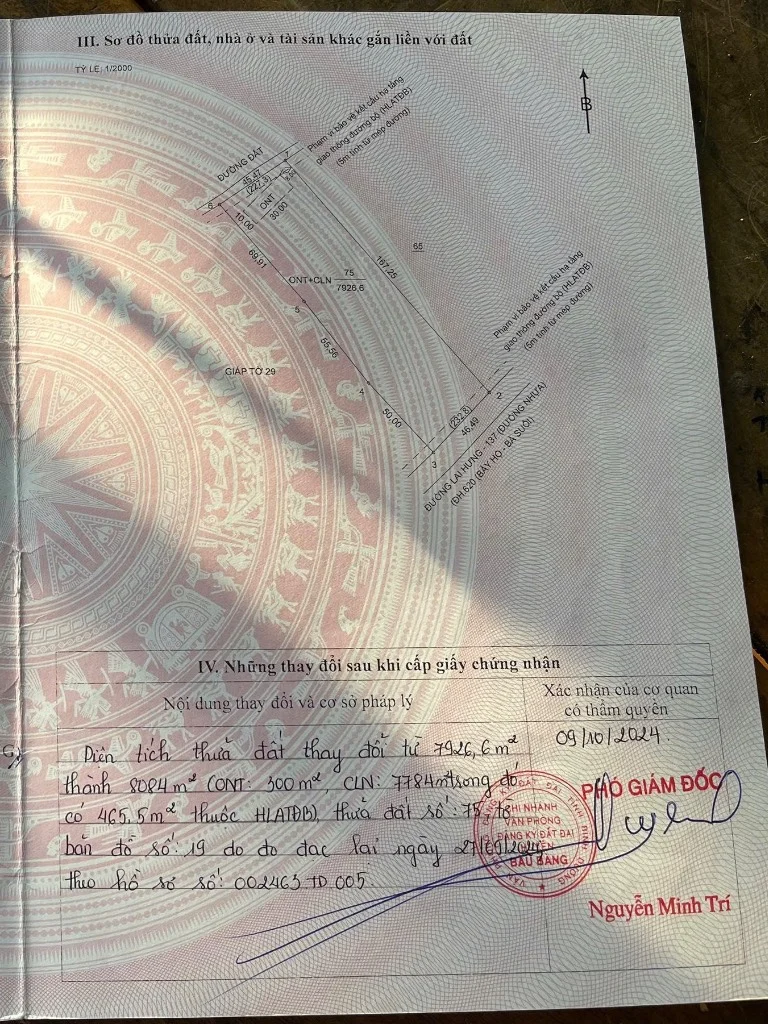 III. Sơ đồ thửa đất, nhà ở và tài sản khác gắn liền với đất
TỶ LỆ: 1/2000
B
Phạm vi bảo vệ kết cấu hạ tầng
giao thông đường bộ (HLATĐB)
(5m tính từ mép đường)
ĐƯỜNG ĐẤT
1
45,47
(227,3)
6
10,00
ONT
30,00
69,91
167,25
65
ONT+CLN
75
7926,6
5
55,56
GIÁP TỜ 29
4
50,00
Phạm vi bảo vệ kết cấu hạ tầng
giao thông đường bộ (HLATĐB)
(5m tính từ mép đường)
2
(232,8)
46,49
3
ĐƯỜNG LAI HƯNG - 137 (ĐƯỜNG NHỰA)
(ĐH.620 (BẢY HỌ - BÀ SUÔI)
IV. Những thay đổi sau khi cấp giấy chứng nhận
Nội dung thay đổi và cơ sở pháp lý
Xác nhận của cơ quan
có thẩm quyền
Diện tích thửa đất thay đổi từ 7926,6m²
thành 8084m² (ONT: 300m², CLN: 7784m² trong đó
có 465,5m² thuộc HLATĐB), thửa đất số: 75, tờ
bản đồ số: 19 do đo đạc lại ngày 27/09/2024
theo hồ sơ số: 002463.TD.005.
09/10/2024
PHÓ GIÁM ĐỐC
CHI NHÁNH
VĂN PHÒNG
ĐĂNG KÝ ĐẤT ĐAI
HUYỆN
BÀU BÀNG
Nguyễn Minh Trí